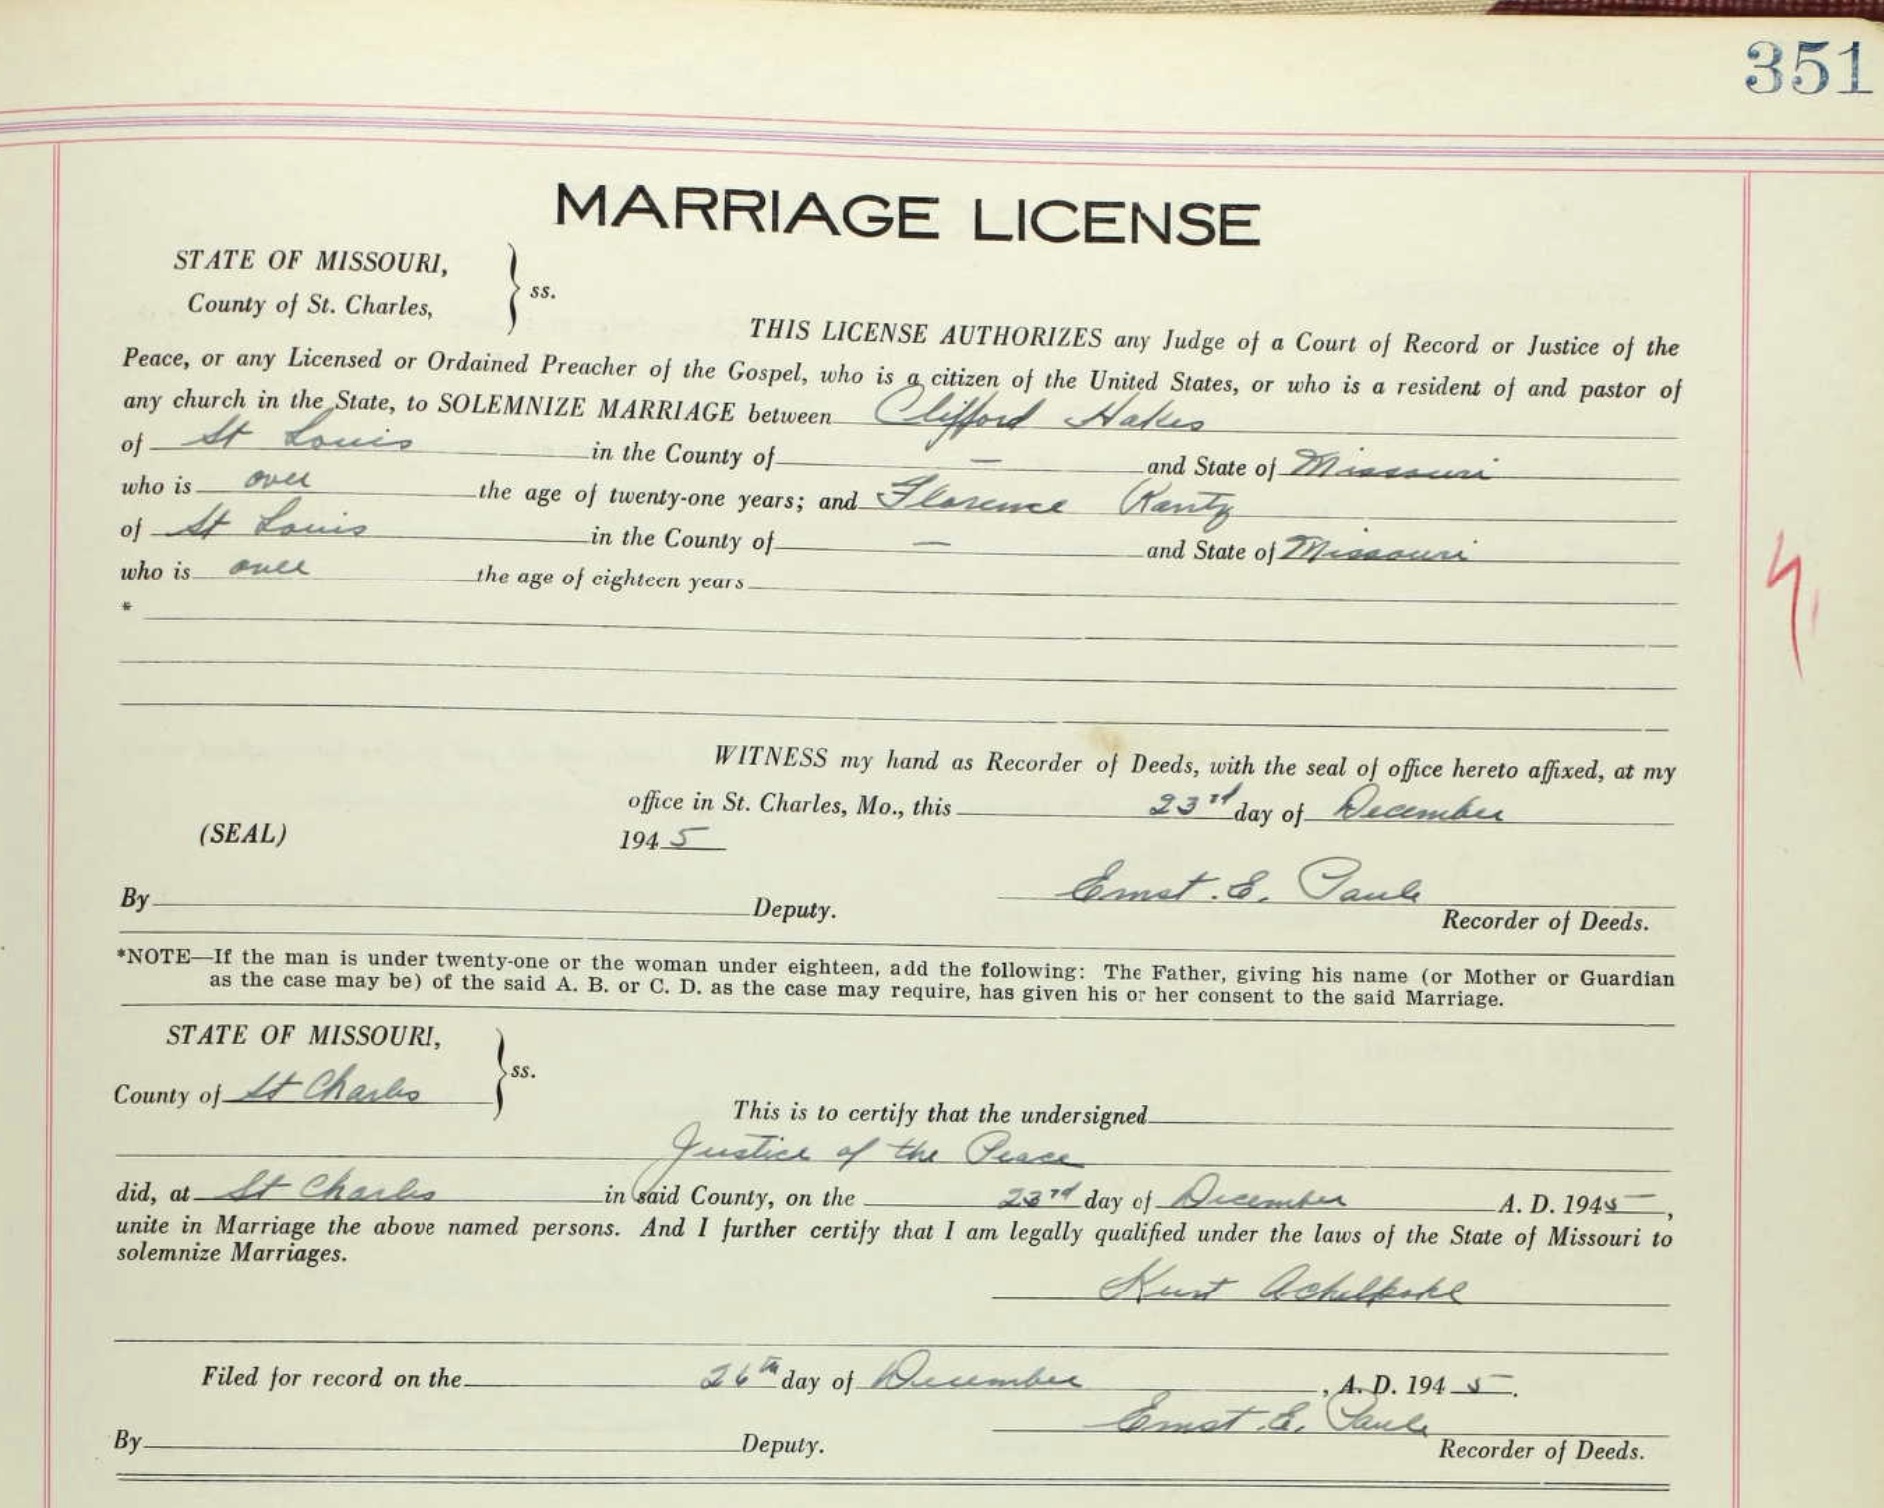 351
MARRIAGE LICENSE
STATE OF MISSOURI,
County of St. Charles,
ss.
THIS LICENSE AUTHORIZES any Judge of a Court of Record or Justice of the
Peace, or any Licensed or Ordained Preacher of the Gospel, who is a citizen of the United States, or who is a resident of and pastor of
any church in the State, to SOLEMNIZE MARRIAGE between Clifford Hakes
of St Louis in the County of — and State of Missouri
who is over the age of twenty-one years; and Florence Rantz
of St Louis in the County of — and State of Missouri
who is over the age of eighteen years
*
WITNESS my hand as Recorder of Deeds, with the seal of office hereto affixed, at my
office in St. Charles, Mo., this 23rd day of December
(SEAL) 1945
Ernst. E. Paule
By Deputy. Recorder of Deeds.
*NOTE—If the man is under twenty-one or the woman under eighteen, add the following: The Father, giving his name (or Mother or Guardian
as the case may be) of the said A. B. or C. D. as the case may require, has given his or her consent to the said Marriage.
STATE OF MISSOURI,
County of St Charles
ss.
This is to certify that the undersigned
Justice of the Peace
did, at St Charles in said County, on the 23rd day of December A. D. 1945,
unite in Marriage the above named persons. And I further certify that I am legally qualified under the laws of the State of Missouri to
solemnize Marriages.
Kurt Achelpohl
Filed for record on the 26th day of December, A. D. 1945.
Ernst. E. Paule
By Deputy. Recorder of Deeds.